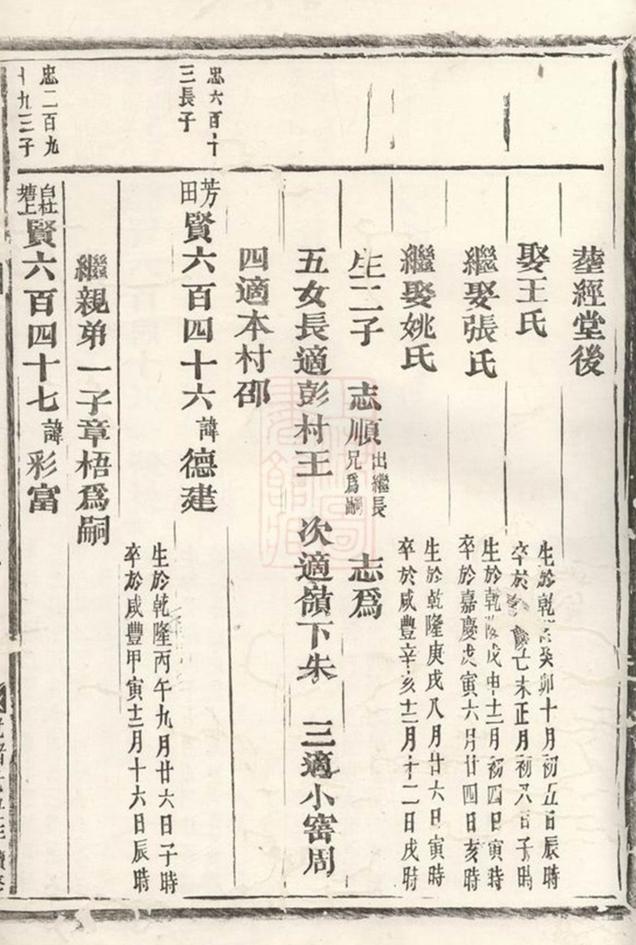 塋經堂後
娶王氏
生於乾隆癸卯十月初五日辰時
卒於慶未正月初八日子時
繼娶張氏
生於乾隆戊申十二月初四日寅時
卒於嘉慶戊寅六月廿四日亥時
繼娶姚氏
生於乾隆庚戌八月廿六日寅時
卒於咸豐辛亥十二月十二日戌時
生二子 志順 出繼長兄爲嗣 志爲
五女長適彭村王 次適嶺下朱 三適小窰周
四適本村邵
忠六百十三長子
芳田 賢六百四十六 諱德建
生於乾隆丙午九月廿六日子時
卒於咸豐甲寅十二月十六日辰時
繼親弟一子章梧爲嗣
忠二百九十九三子
白杜上 賢六百四十七 諱彩富